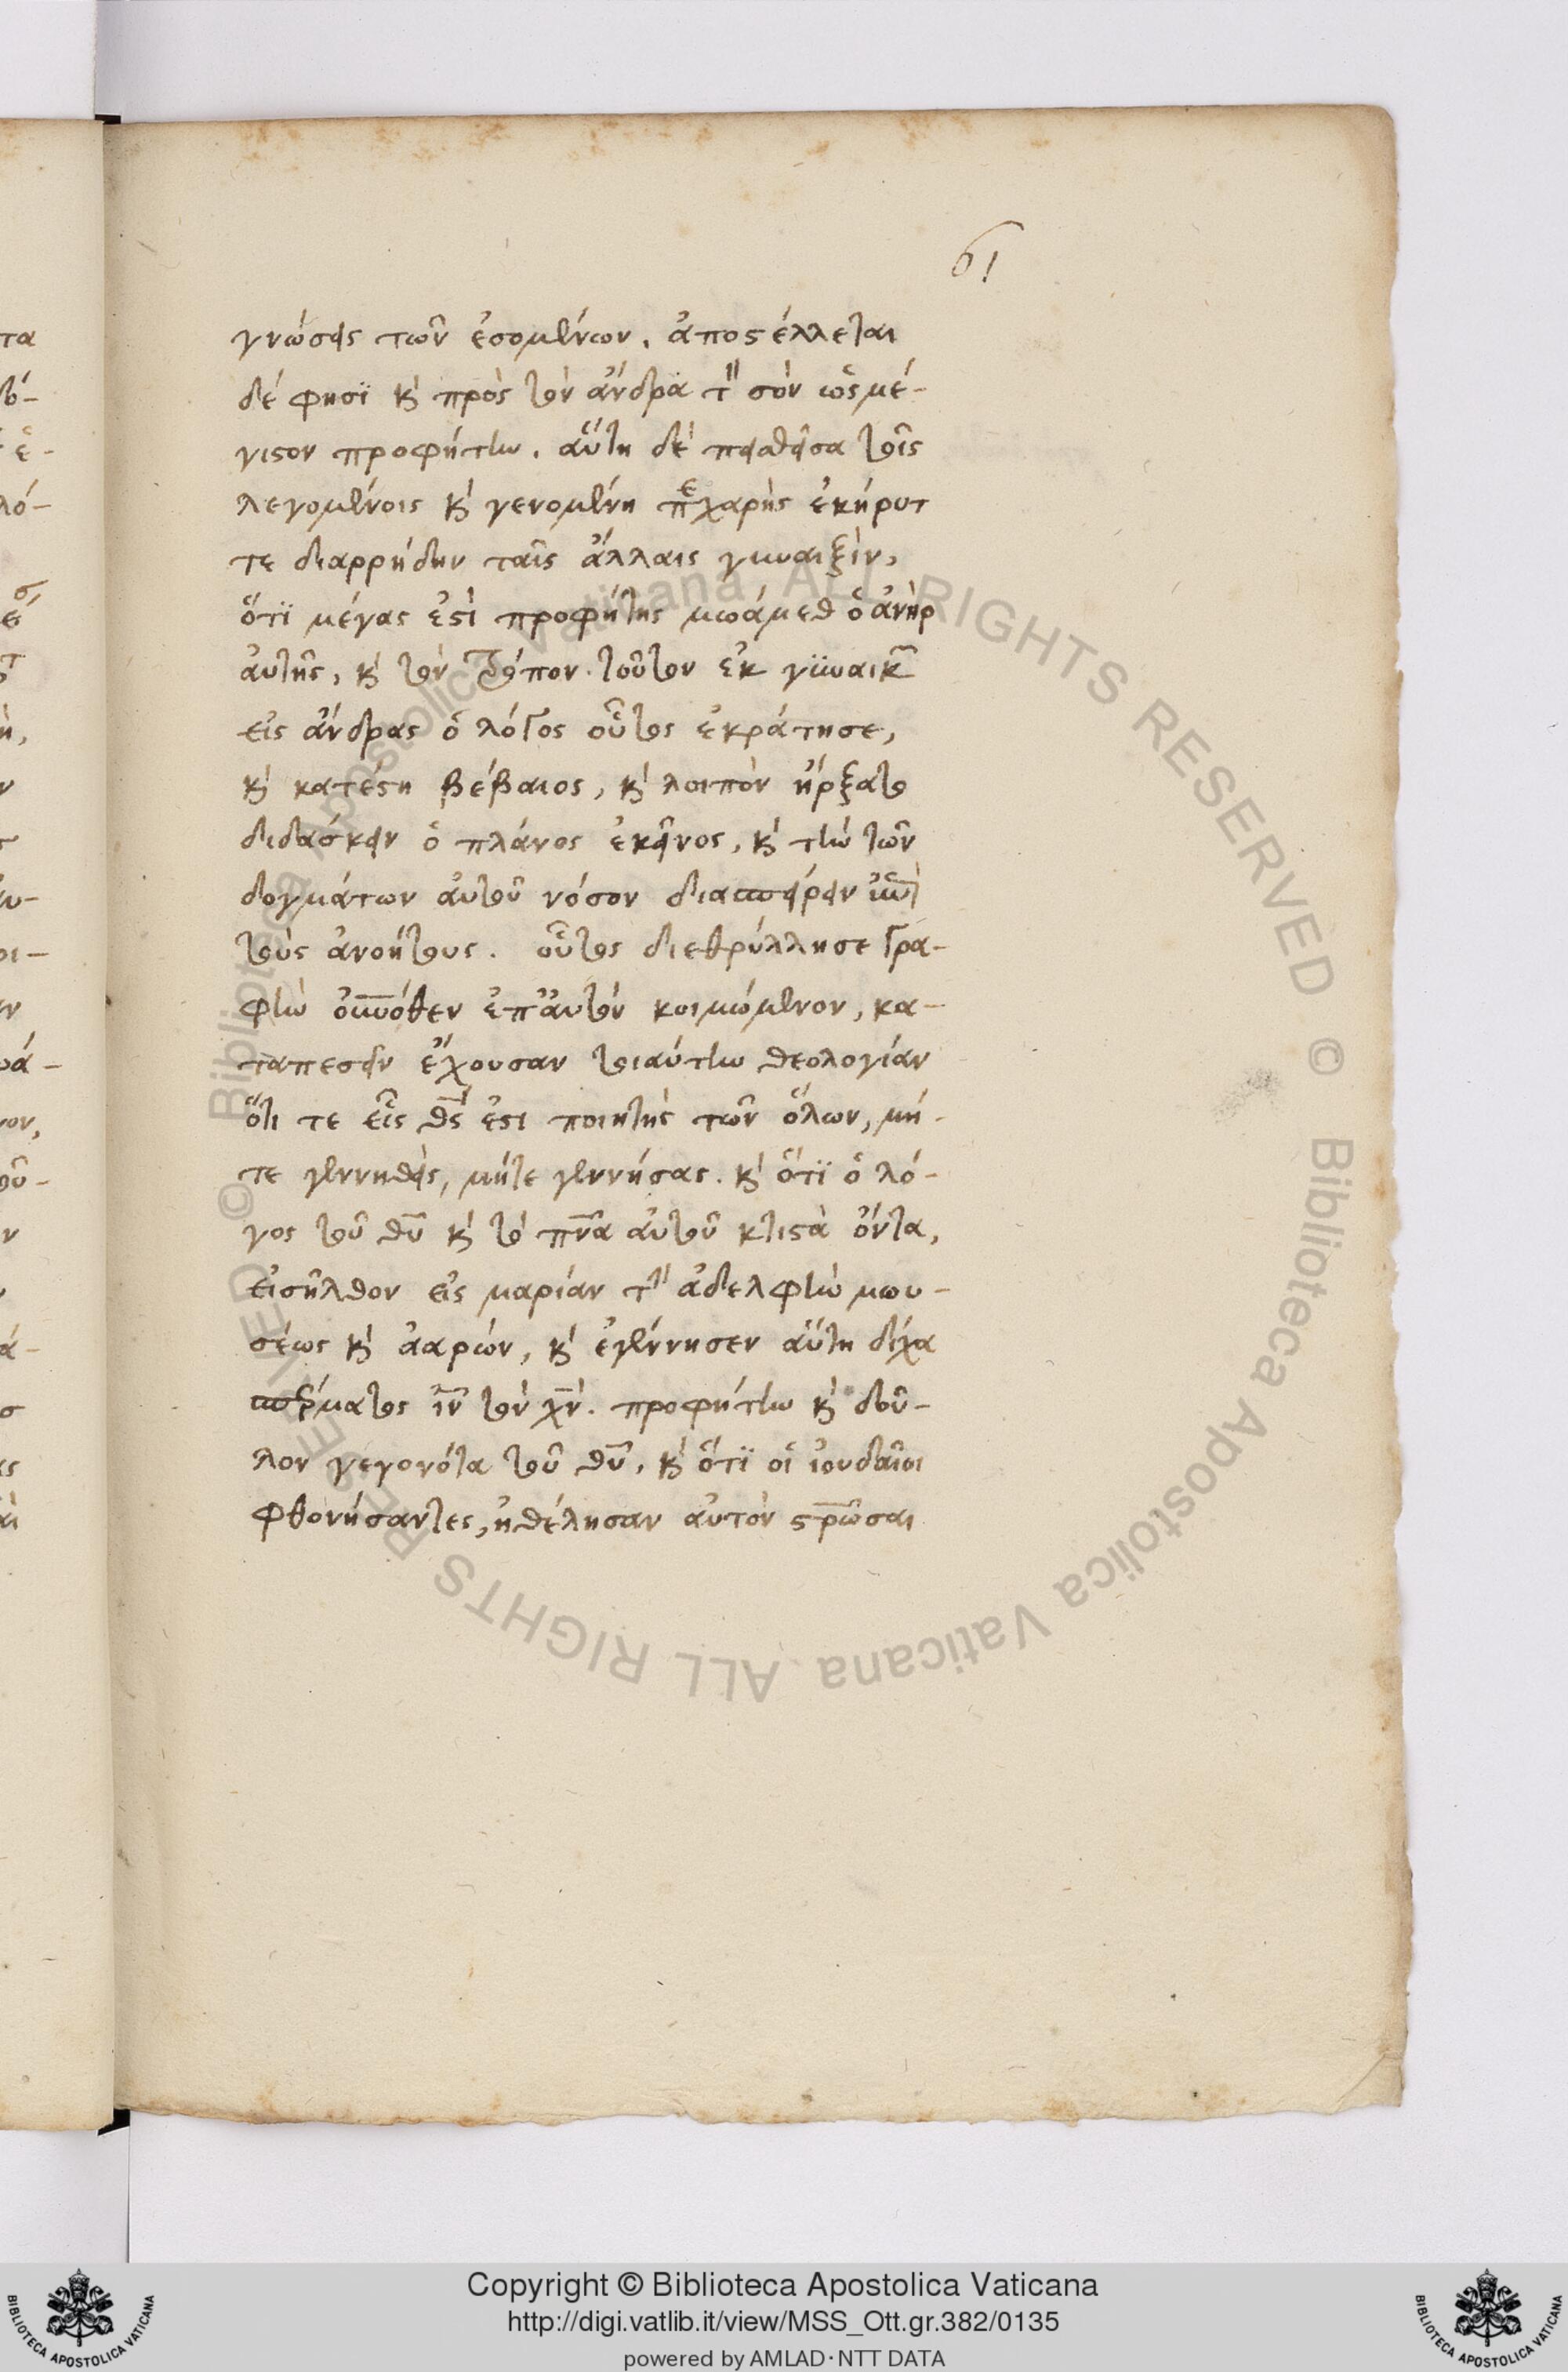 61
γνώσεις τῶν ἐσομένων. ἀποστέλλεται
δέ φησϊ κ̀ πρὸς τὸν ἄνδρα τὸν σὸν ὡς μέ-
γιστον προφήτην. αὕτη δὲ πεισθεῖσα τοῖς
λεγομένοις κ̀ γενομένη περιχαρὴς ἐκήρυτ
τε διαρρήδην ταῖς ἄλλαις γυναιξὶν,
ὅτϊ μέγας ἐστὶ προφήτης μωάμεθ ὁ ἀνὴρ
ἀυτῆς, κ̀ τὸν τρόπον τοῦτον ἐκ γϋναικῶν
εἰς ἄνδρας ὁ λόγος οὗτος ἐκράτησε,
κ̀ κατέστη βέβαιος, κ̀ λοιπὸν ἤρξατο
διδάσκειν ὁ πλάνος ἐκεῖνος, κ̀ τὴν τῶν
δογμάτων ἀυτοῦ νόσον διασπείρειν ἐπὶ
τοὺς ἀνοήτους. οὗτος διεθρύλλησε γρα-
φὴν οὐνόθεν ἐπ ἀυτὸν κοιμώμενον, κα-
ταπεσεῖν ἔχουσαν τοιαύτην θεολογίαν
ὅτι τε εἷς θς ἐστι ποιητὴς τῶν ὅλων, μή-
τε γεννηθεὶς, μήτε γεννήσας. κ̀ ὅτϊ ὁ λό-
γος τοῦ θυ κ̀ τὸ πνα ἀυτοῦ κτιστὰ ὄντα,
εἰσῆλθον εἰς μαρίαν τὴν ἀδελφὴν μωυ-
σέως κ̀ ἀαρών, κ̀ ἐγέννησεν αὕτη δίχα
σπέρματος ιν τὸν χν. προφήτην κ̀ δοῦ-
λον γεγονότα τοῦ θυ, κ̀ ὅτϊ οἱ ἰουδαῖοι
φθονήσαντες, ἠθέλησαν αὐτὸν στρῶσαι
Copyright © Biblioteca Apostolica Vaticana
http://digi.vatlib.it/view/MSS_Ott.gr.382/0135
powered by AMLAD·NTT DATA
© Biblioteca Apostolica Vaticana ALL RIGHTS RESERVED
© Biblioteca Apostolica Vaticana ALL RIGHTS RESERVED
BIBLIOTECA APOSTOLICA VATICANA
BIBLIOTECA APOSTOLICA VATICANA